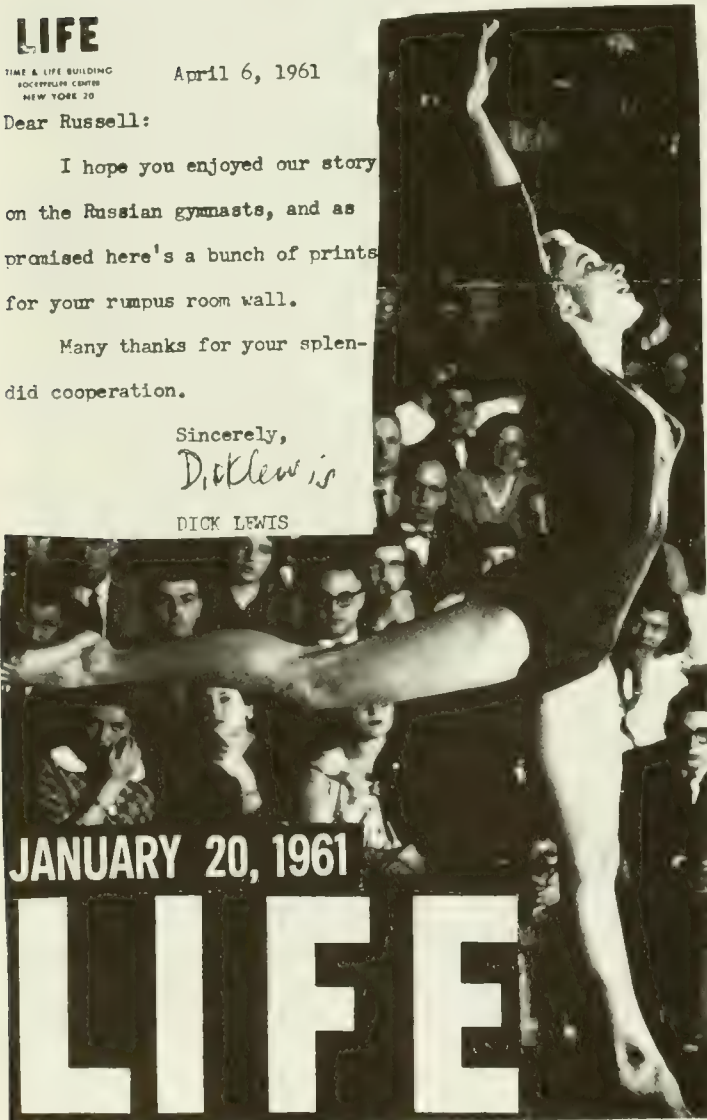 LIFE
TIME & LIFE BUILDING
ROCKEFELLER CENTER
NEW YORK 20
April 6, 1961
Dear Russell:
I hope you enjoyed our story
on the Russian gymnasts, and as
promised here's a bunch of prints
for your rumpus room wall.
Many thanks for your splen-
did cooperation.
Sincerely,
Dick Lewis
DICK LEWIS
JANUARY 20, 1961
LIFE